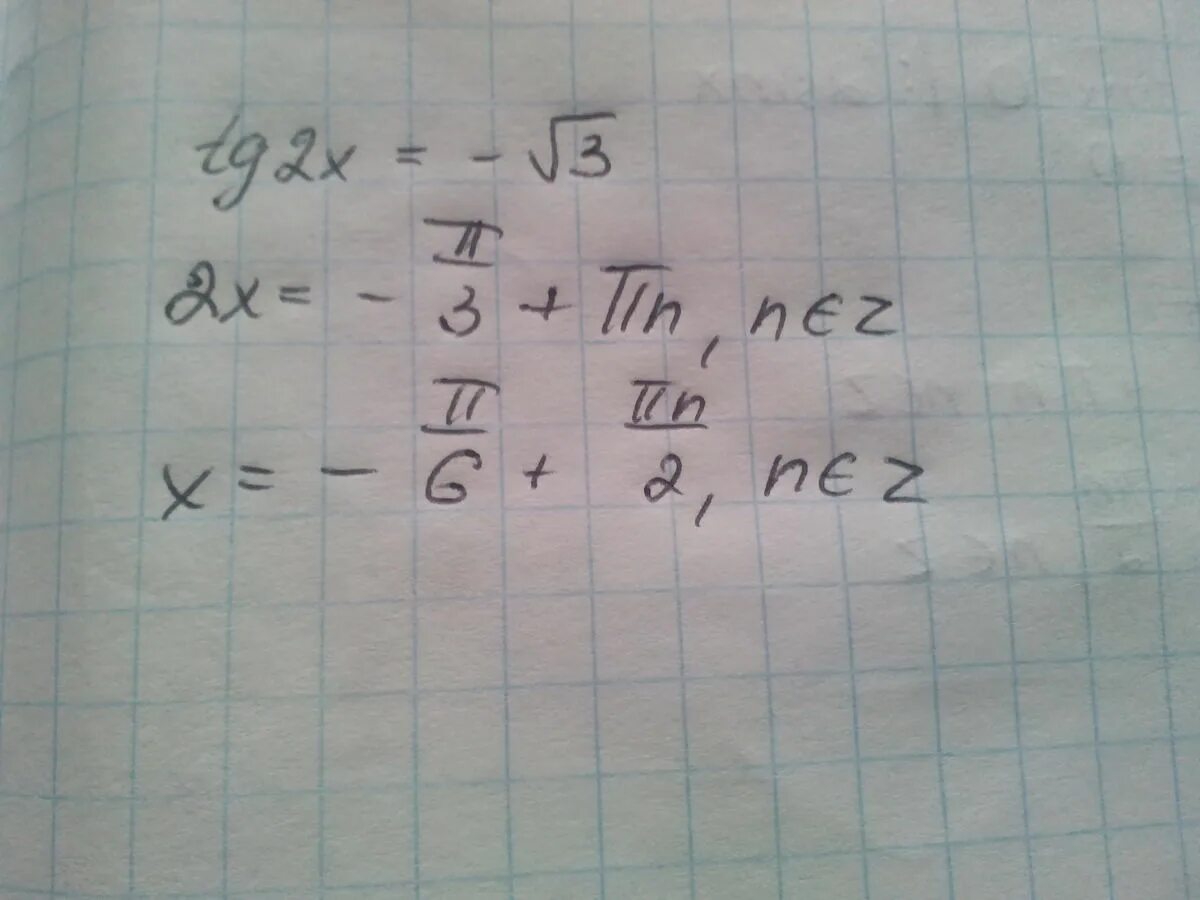 tg2x = -√3
2x = - π/3 + πn, n∈z
x = - π/6 + πn/2, n∈z